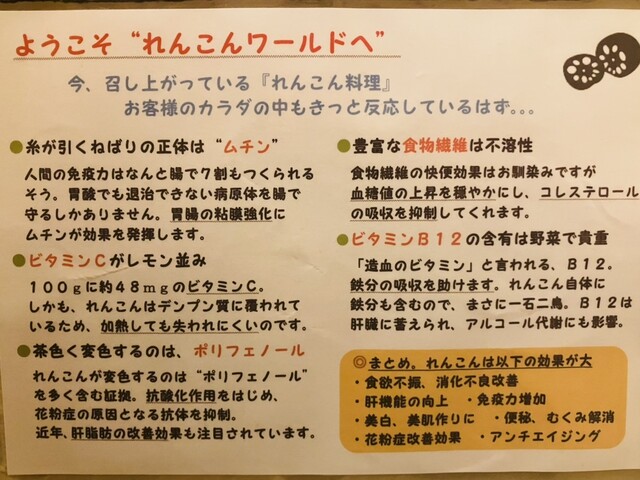 ようこそ“れんこんワールドへ”
今、召し上がっている『れんこん料理』
お客様のカラダの中もきっと反応しているはず。。。
●糸が引くねばりの正体は“ムチン”
人間の免疫力はなんと腸で7割もつくられる
そう。胃酸でも退治できない病原体を腸で
守るしかありません。胃腸の粘膜強化に
ムチンが効果を発揮します。
●ビタミンCがレモン並み
100gに約48mgのビタミンC。
しかも、れんこんはデンプン質に覆われて
いるため、加熱しても失われにくいのです。
●茶色く変色するのは、ポリフェノール
れんこんが変色するのは“ポリフェノール”
を多く含む証拠。抗酸化作用をはじめ、
花粉症の原因となる抗体を抑制。
近年、肝脂肪の改善効果も注目されています。
●豊富な食物繊維は不溶性
食物繊維の快便効果はお馴染みですが
血糖値の上昇を穏やかにし、コレステロール
の吸収を抑制してくれます。
●ビタミンB12の含有は野菜で貴重
「造血のビタミン」と言われる、B12。
鉄分の吸収を助けます。れんこん自体に
鉄分も含むので、まさに一石二鳥。B12は
肝臓に蓄えられ、アルコール代謝にも影響。
◎まとめ。れんこんは以下の効果が大
・食欲不振、消化不良改善
・肝機能の向上 ・免疫力増加
・美白、美肌作りに ・便秘、むくみ解消
・花粉症改善効果 ・アンチエイジング